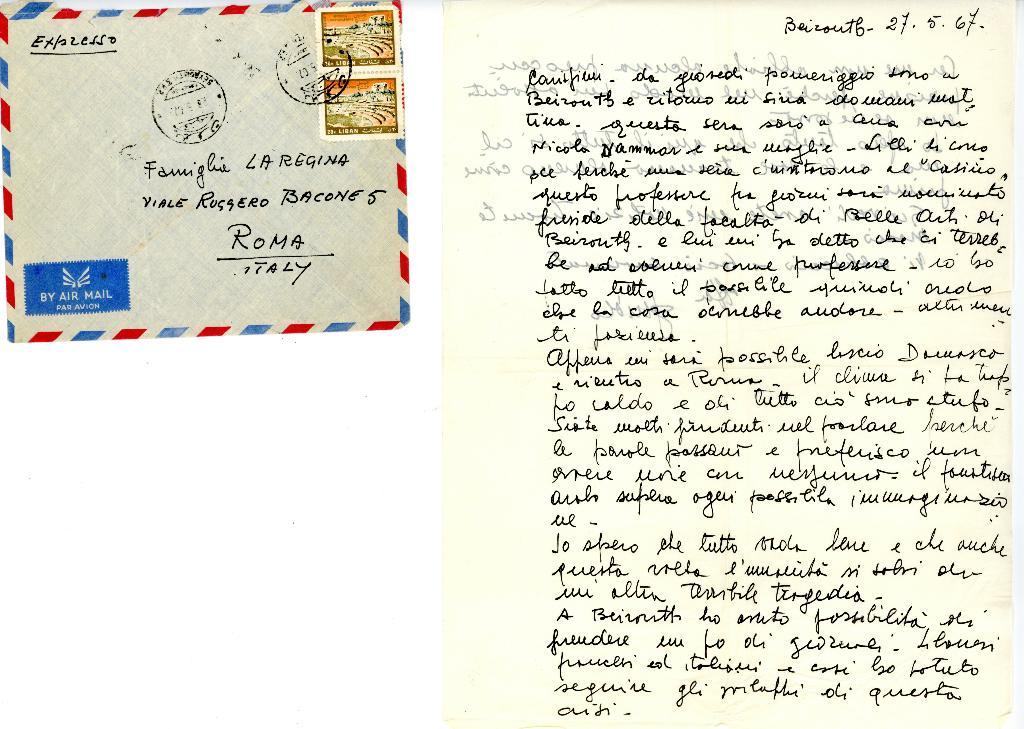 Expresso
LIBAN
20P LIBAN
Famiglia LA REGINA
VIALE RUGGERO BACONE 5
ROMA
ITALY
BY AIR MAIL
PAR AVION
Beirouth - 27. 5. 67.
Carissimi - da giovedì pomeriggio sono a
Beirouth e ritorno in Siria domani mat
tina - questa sera sarò a cena con
Nicola Nammar e sua moglie - Lilli li cono
sce perché una sera c'invitarono al "Casino"
questo professore fra giorni sarà nominato
preside della facoltà di Belle Arti di
Beirouth - e lui mi ha detto che ci terreb-
be ad avermi come professore - io ho
fatto tutto il possibile quindi credo
che la cosa dovrebbe andare - altrimen
ti pazienza -
Appena mi sarà possibile lascio Damasco
e rientro a Roma - il clima si fa trop
po caldo e di tutto ciò sono stufo -
Siate molto prudenti nel parlare perché
le parole passano e preferisco non
avere noie con nessuno - il fanatismo
arabo supera ogni possibile immaginazio
ne -
Io spero che tutto vada bene e che anche
questa volta l'umanità si salvi da
un'altra terribile tragedia -
A Beirouth ho avuto possibilità di
prendere un po di giornali - libanesi
francesi ed italiani - e così ho potuto
seguire gli sviluppi di questa
crisi -